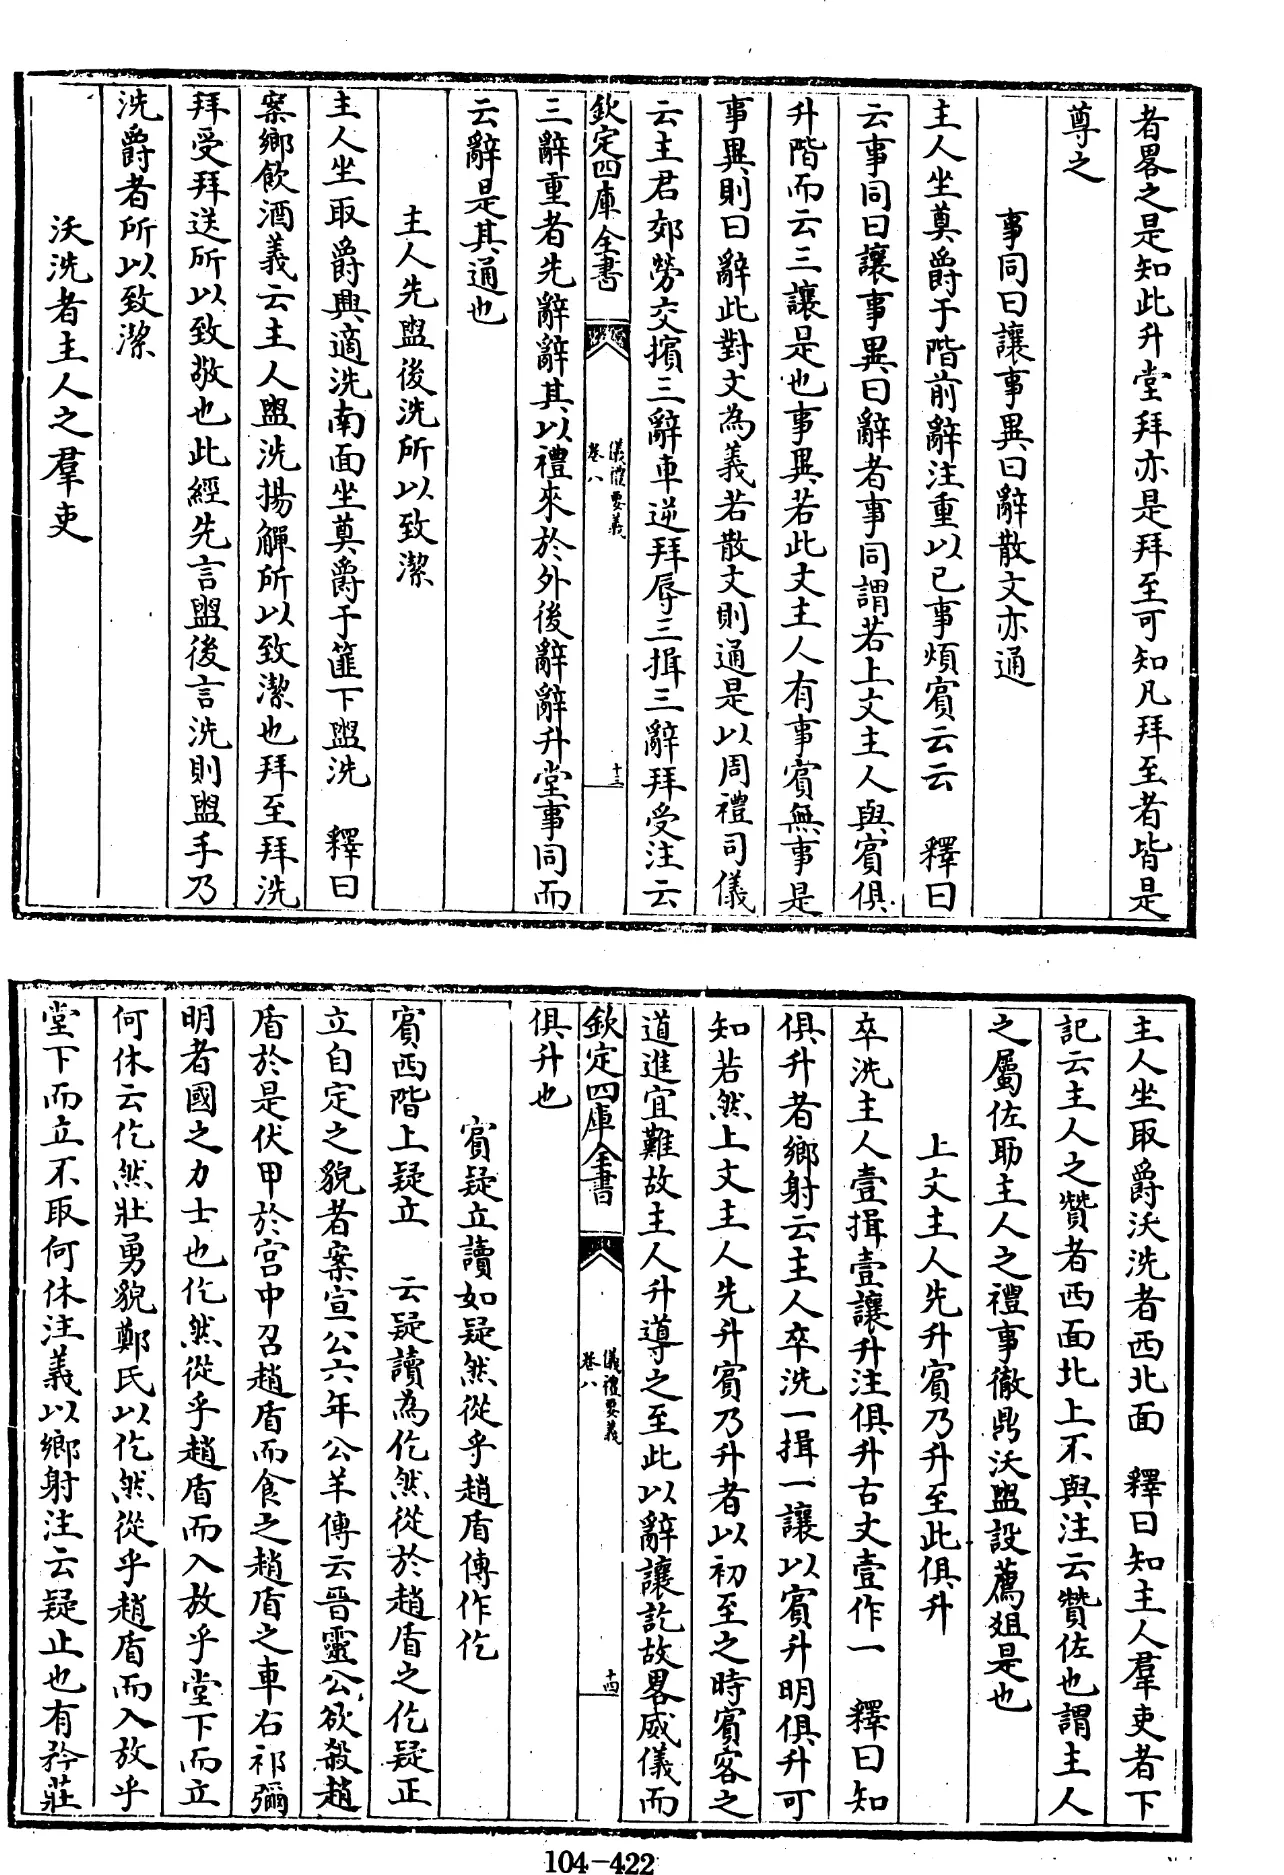 者畧之是知此升堂拜亦是拜至可知凡拜至者皆是
尊之
事同曰讓事異曰辭散文亦通
主人坐奠爵于階前辭注重以已事煩賓云云　釋曰
云事同曰讓事異曰辭者事同謂若上文主人與賓俱
升階而云三讓是也事異若此文主人有事賓無事是
事異則曰辭此對文為義若散文則通是以周禮司儀
云主君郊勞交擯三辭車逆拜辱三揖三辭拜受注云
欽定四庫全書
儀禮要義
卷八
十三
三辭重者先辭辭其以禮來於外後辭辭升堂事同而
云辭是其通也
主人先盥後洗所以致潔
主人坐取爵興適洗南面坐奠爵于篚下盥洗　釋曰
案鄉飲酒義云主人盥洗揚觶所以致潔也拜至拜洗
拜受拜送所以致敬也此經先言盥後言洗則盥手乃
洗爵者所以致潔
沃洗者主人之羣吏
主人坐取爵沃洗者西北面　釋曰知主人羣吏者下
記云主人之贊者西面北上不與注云贊佐也謂主人
之屬佐助主人之禮事徹鼎沃盥設薦俎是也
上文主人先升賓乃升至此俱升
卒洗主人壹揖壹讓升注俱升古文壹作一　釋曰知
俱升者鄉射云主人卒洗一揖一讓以賓升明俱升可
知若然上文主人先升賓乃升者以初至之時賓客之
道進宜難故主人升導之至此以辭讓訖故畧威儀而
欽定四庫全書
儀禮要義
卷八
十四
俱升也
賓疑立讀如疑然從乎趙盾傳作仡
賓西階上疑立　云疑讀為仡然從於趙盾之仡疑正
立自定之貌者案宣公六年公羊傳云晉靈公欲殺趙
盾於是伏甲於宫中召趙盾而食之趙盾之車右祁彌
明者國之力士也仡然從乎趙盾而入放乎堂下而立
何休云仡然壯勇貌鄭氏以仡然從乎趙盾而入放乎
堂下而立不取何休注義以鄉射注云疑止也有矜莊
104-422